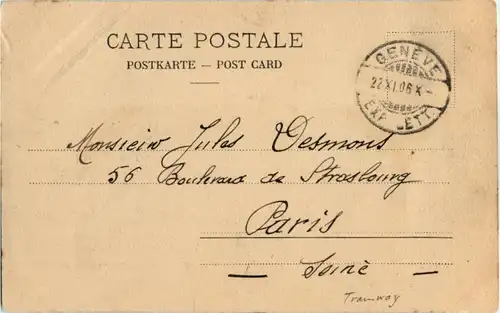 CARTE POSTALE
POSTKARTE — POST CARD
GENÈVE
22 XI.06 X-
EXP. LETT.
Monsieur Jules Desmons
56 Boulevard de Strasbourg
Paris
— Seine —
Tramway